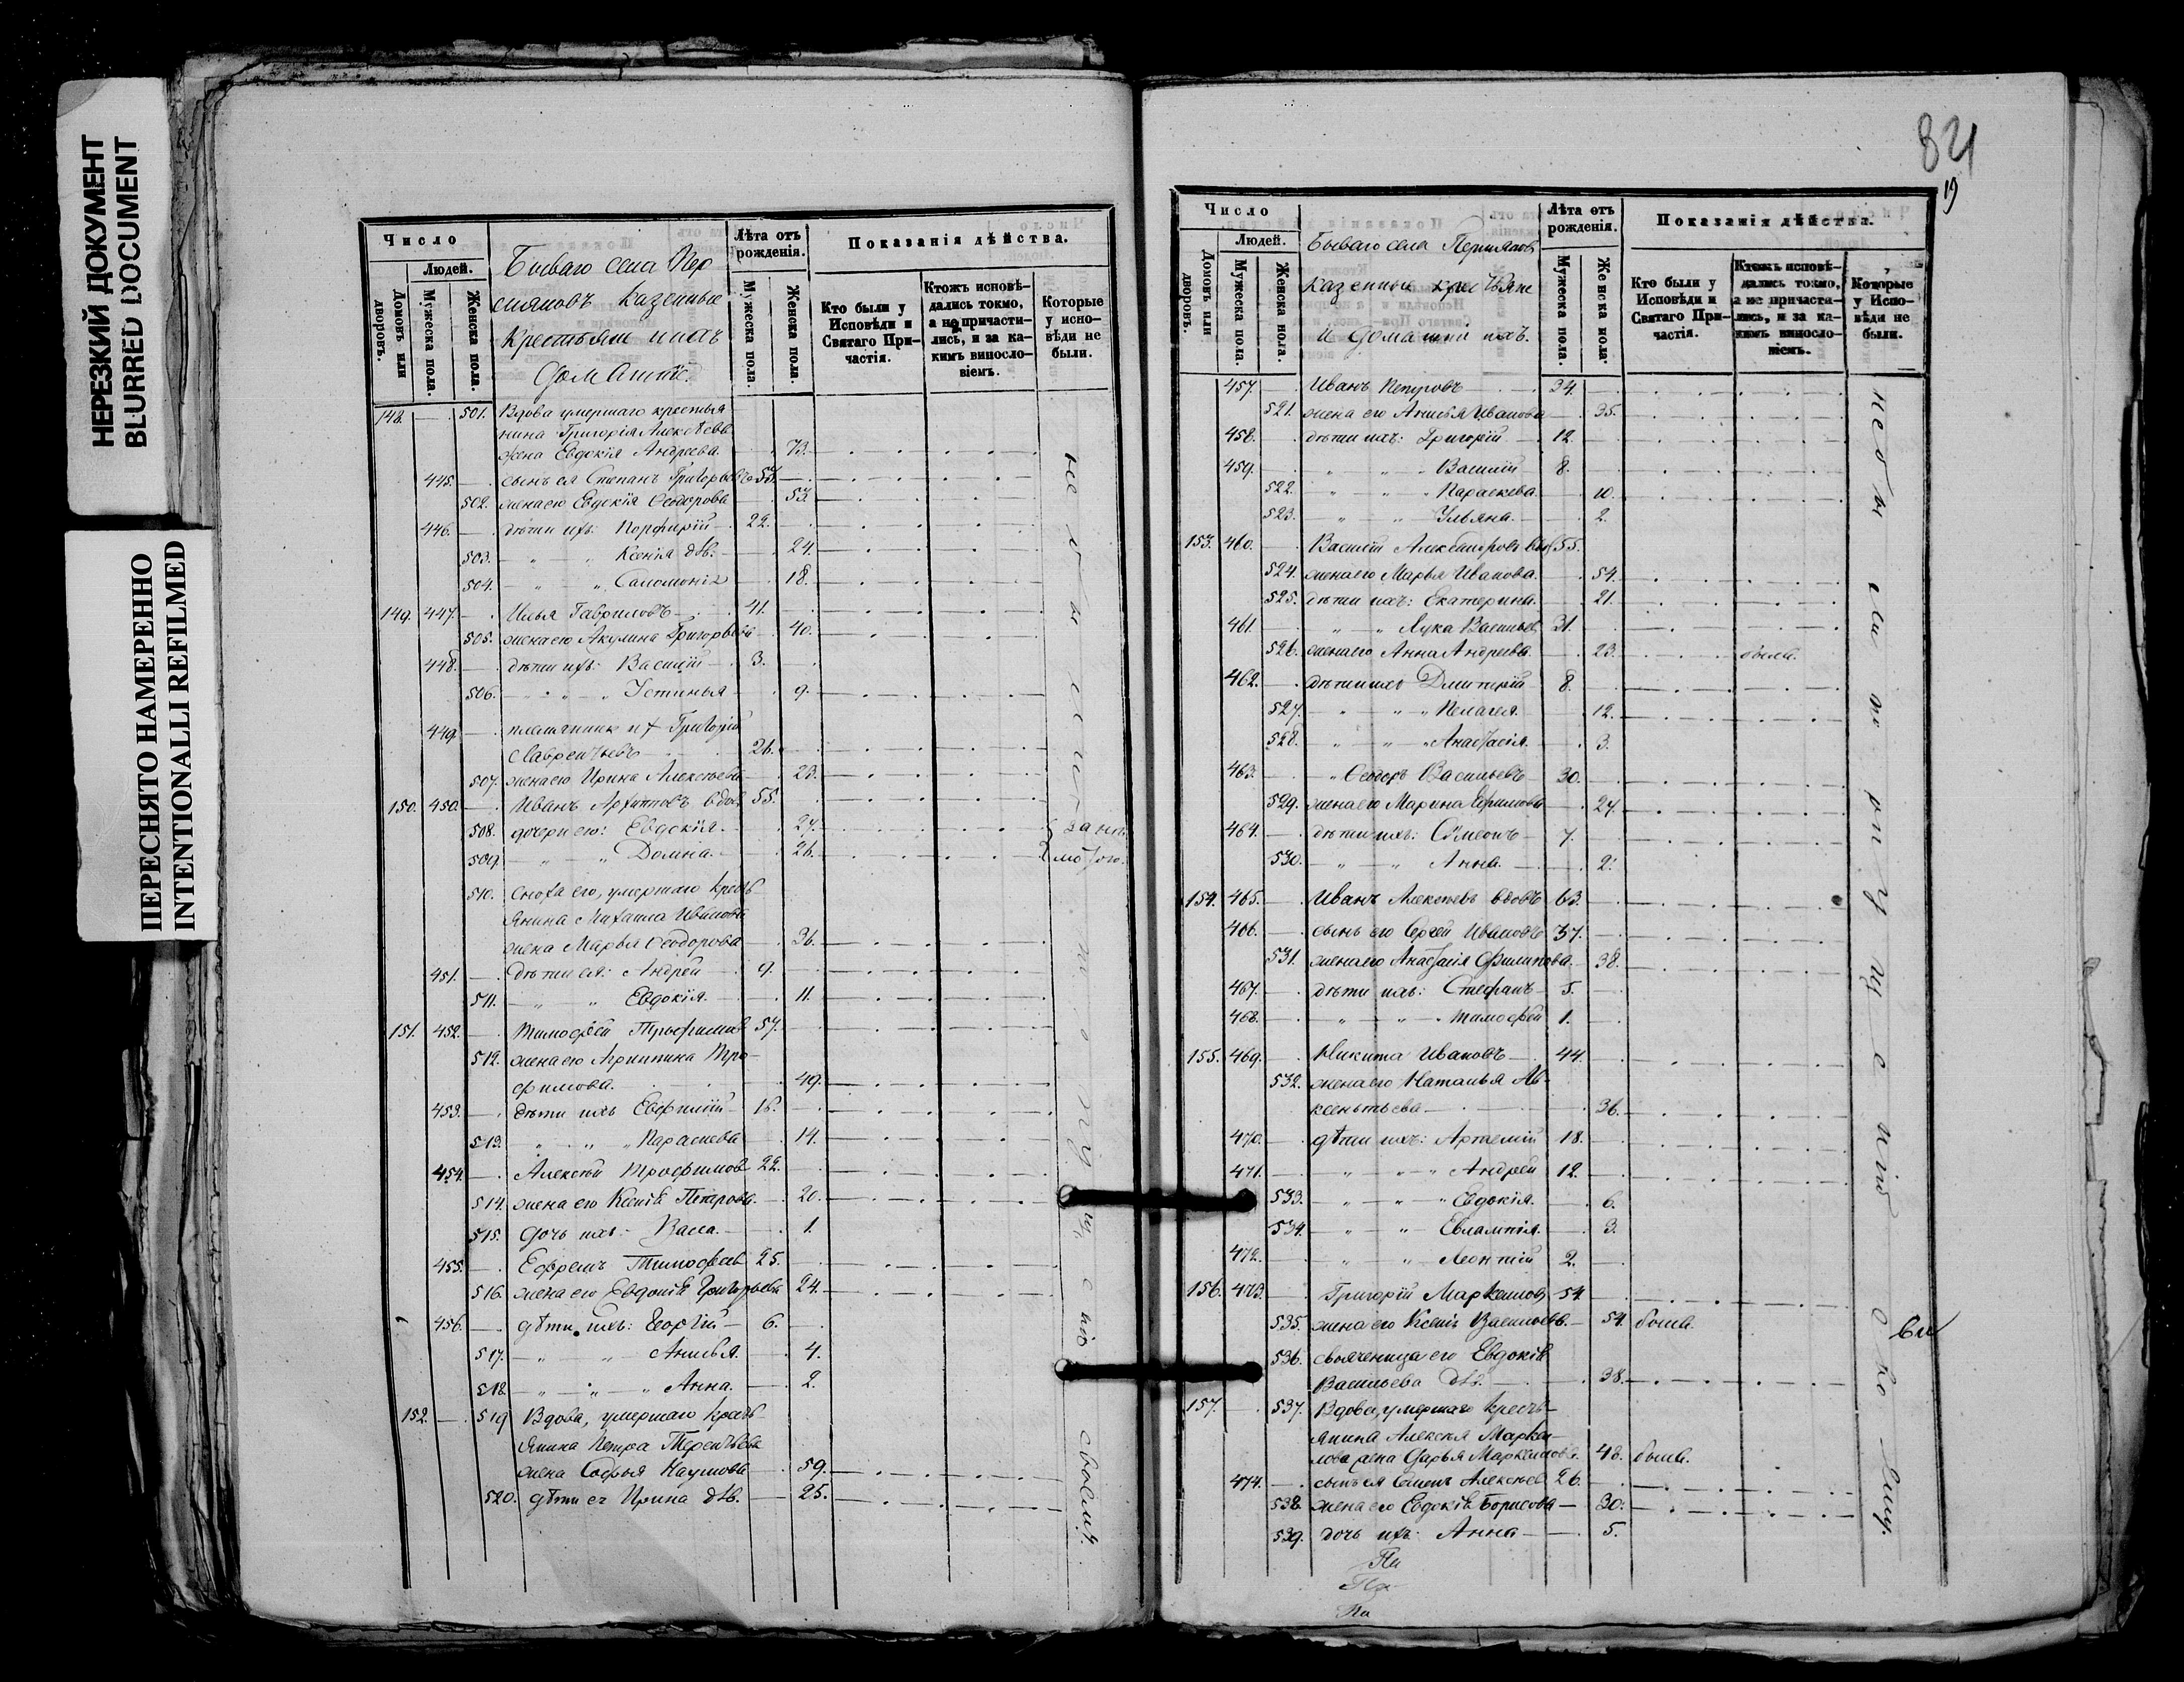 НЕРЕЗКИЙ ДОКУМЕНТ
BLURRED DOCUMENT
ПЕРЕСНЯТО НАМЕРЕННО
INTENTIONALLI REFILMED
Число
Людей.
Домовъ или дворовъ.
Мужеска пола.
Женска пола.
Бываго села Пер
мяковъ казенные
крестьяне и ихъ
домашніе.
Лѣта отъ рожденія.
Мужеска пола.
Женска пола.
Показанія дѣйства.
Кто были у Исповѣди и Святаго Причастія.
Ктожъ исповѣдались токмо, а не причастились, и за какимъ винословіемъ.
Которые у исповѣди не были.
148. — 501. Вдова умершаго крестья
нина Григорія Алексѣева
жена Евдокія Андреева. 73.
445. — сынъ ея Степанъ Григорьевъ 53.
502. жена его Евдокія Ѳеодорова 53.
446. — дѣти ихъ: Порфирій — 22.
503. — „ „ Ксенія дѣв. — 24.
504. — „ „ Саломонія — 18.
149. 447. — Илья Гавриловъ — 41.
505. жена его Акулина Григорьева 40.
448. — дѣти ихъ: Василій — 3.
506. — „ „ Устинья — 9.
449. — племянникъ их Григорій
Лаврентьевъ 26.
507. жена его Ирина Алексѣева 23.
150. 450. — Иванъ Архиповъ вдов. 55.
508. дочери его: Евдокія. — 27. за нѣ
509. — „ „ Домна. — 26. мотою.
510. сноха его, умершаго кресть
янина Михаила Иванова
жена Марья Ѳеодорова — 36.
451. — дѣти ея: Андрей — 9.
511. — „ „ Евдокія. — 11.
151. 452. — Тимоѳей Трофимов 57.
512. жена его Агриппина Тро—
фимова. 49.
453. — дѣти ихъ Евфимій — 16.
513. „ „ „ Параскева 14.
454. — Алексѣй Трофимовъ 22.
514. жена его Ксенія Петрова. 20.
515. дочь ихъ: Васса. 1.
455. — Ефремъ Тимофеев 25.
516. жена его Евдокія Григорьева 24.
456. — дѣти ихъ: Георгій — 6.
517. — „ „ Анисья. — 4.
518. — „ „ „ Анна. — 2.
152. — 519 Вдова, умершаго кресть
янина Петра Терентьева
жена Софья Наумова — 59.
520. дѣти ея Ирина дѣв. — 25.
не были по отлучнію своему.
84
19
Число
Людей.
Домовъ или дворовъ.
Мужеска пола.
Женска пола.
Бываго села Пермяковъ
казенные крестьяне
и домашніе ихъ.
Лѣта отъ рожденія.
Мужеска пола.
Женска пола.
Показанія дѣйства.
Кто были у Исповѣди и Святаго Причастія.
Ктожъ исповѣдались токмо, а не причастились, и за какимъ винословіемъ.
Которые у Исповѣди не были.
457. Иванъ Петровъ — 34.
521. жена его Анисья Иванова 35.
458. дѣти ихъ: Григорій — 12.
459. „ „ Василій 8.
522. „ „ „ Параскева. 10.
523. — „ „ Ульяна. — 2.
153. 460. — Василій Александровъ 55.
524. жена его Марья Иванова. 54.
525. дѣти ихъ: Екатерина. — 21.
461. „ „ Лука Васильев. 31.
526. жена его Анна Андреева. 23. была.
462. — дѣти ихъ Дмитрій 8.
527. „ „ „ Пелагея. 12.
528. „ „ „ Анастасія. 3.
463. — „ Ѳеодоръ Васильевъ 30.
529. жена его Марина Ефимова 27.
464. — дѣти ихъ: Сѵмеонъ — 7.
530. — „ „ Анна. 2.
154. 465. — Иванъ Алексѣевъ вдовъ 63.
466. — сынъ его Сергей Ивановъ 37.
531. жена его Анастасія Филипова. 38.
467. — дѣти ихъ: Стефанъ — 5.
468. „ „ „ Тимоѳей 1.
155. 469. — Никита Ивановъ — 44.
532. жена его Наталья Ав—
ксентьева — 36.
470. — дѣти ихъ: Артемій 18.
471. — „ „ „ Андрей 12.
533. „ „ „ Евдокія. 6.
534. „ „ Евлампія. 3.
472. — „ „ Леонтій 2.
156. 473. — Григорій Маркеловъ 54.
535. жена его Ксенія Васильева. 54. была.
536. свояченица его Евдокія
Васильева дѣв. 38.
157. 537. Вдова, умершаго кресть—
янина Алексѣя Марке—
лова жена Дарья Маркелова. 48. была.
474. — сынъ ея Семенъ Алексѣев. 26.
538. жена его Евдокія Борисова — 30.
539. дочь ихъ: Анна — 5.
Па
Па
Па